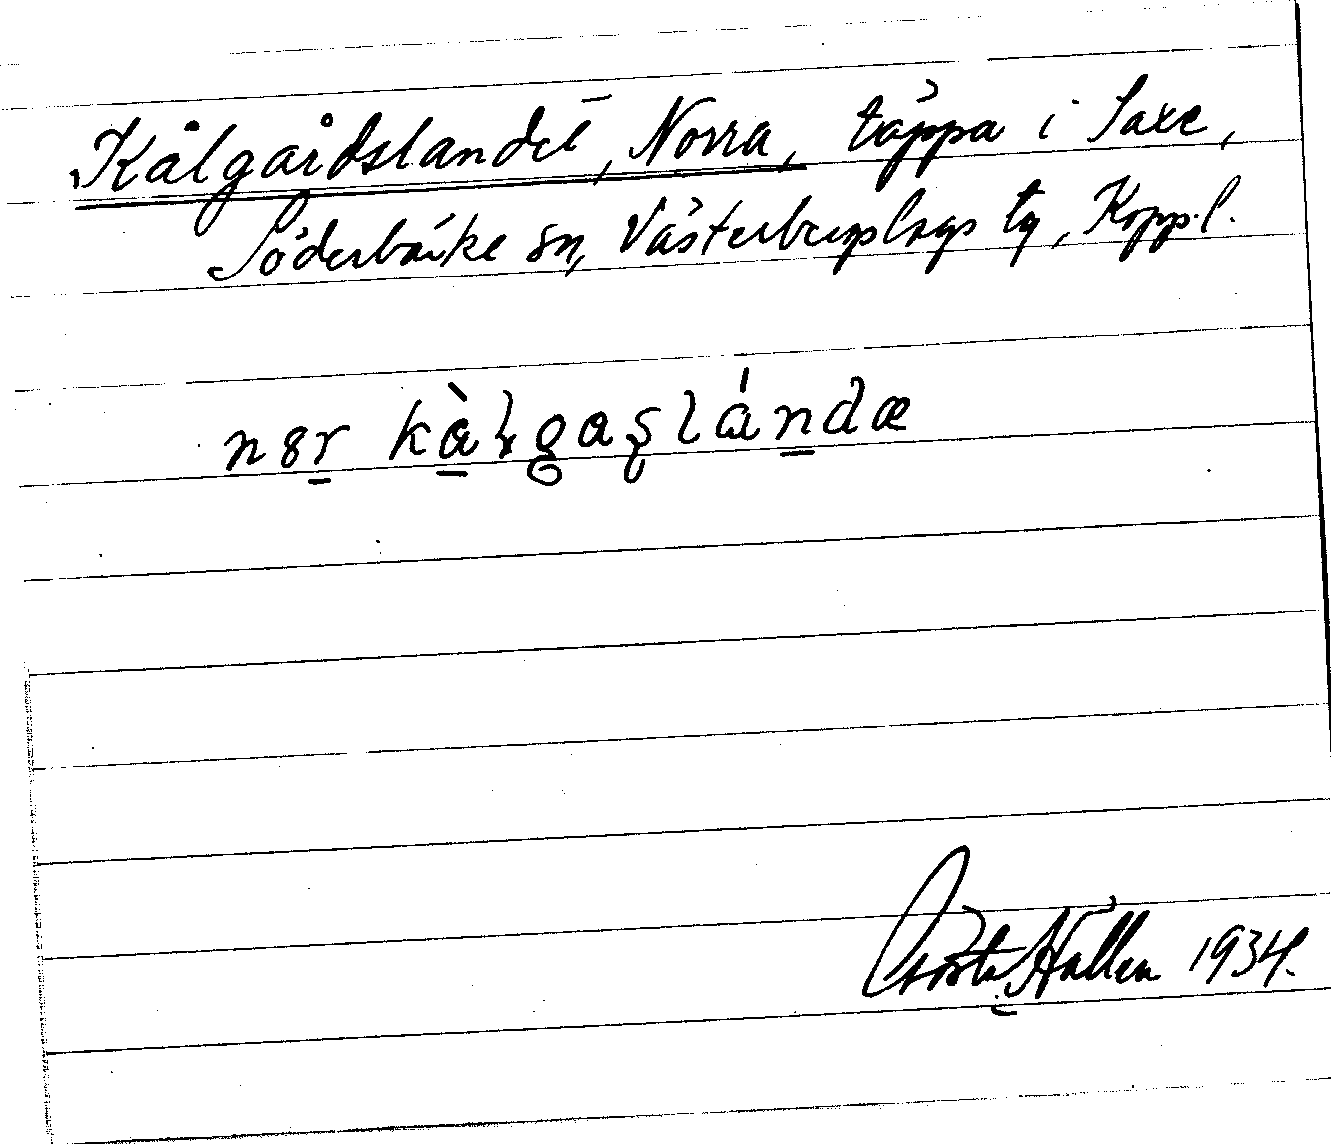 Kålgårdslandet, Norra, täppa i Saxe,
Söderbärke sn, Västerbergslags tg, Kopp.l.
Gösta Hållén 1934.